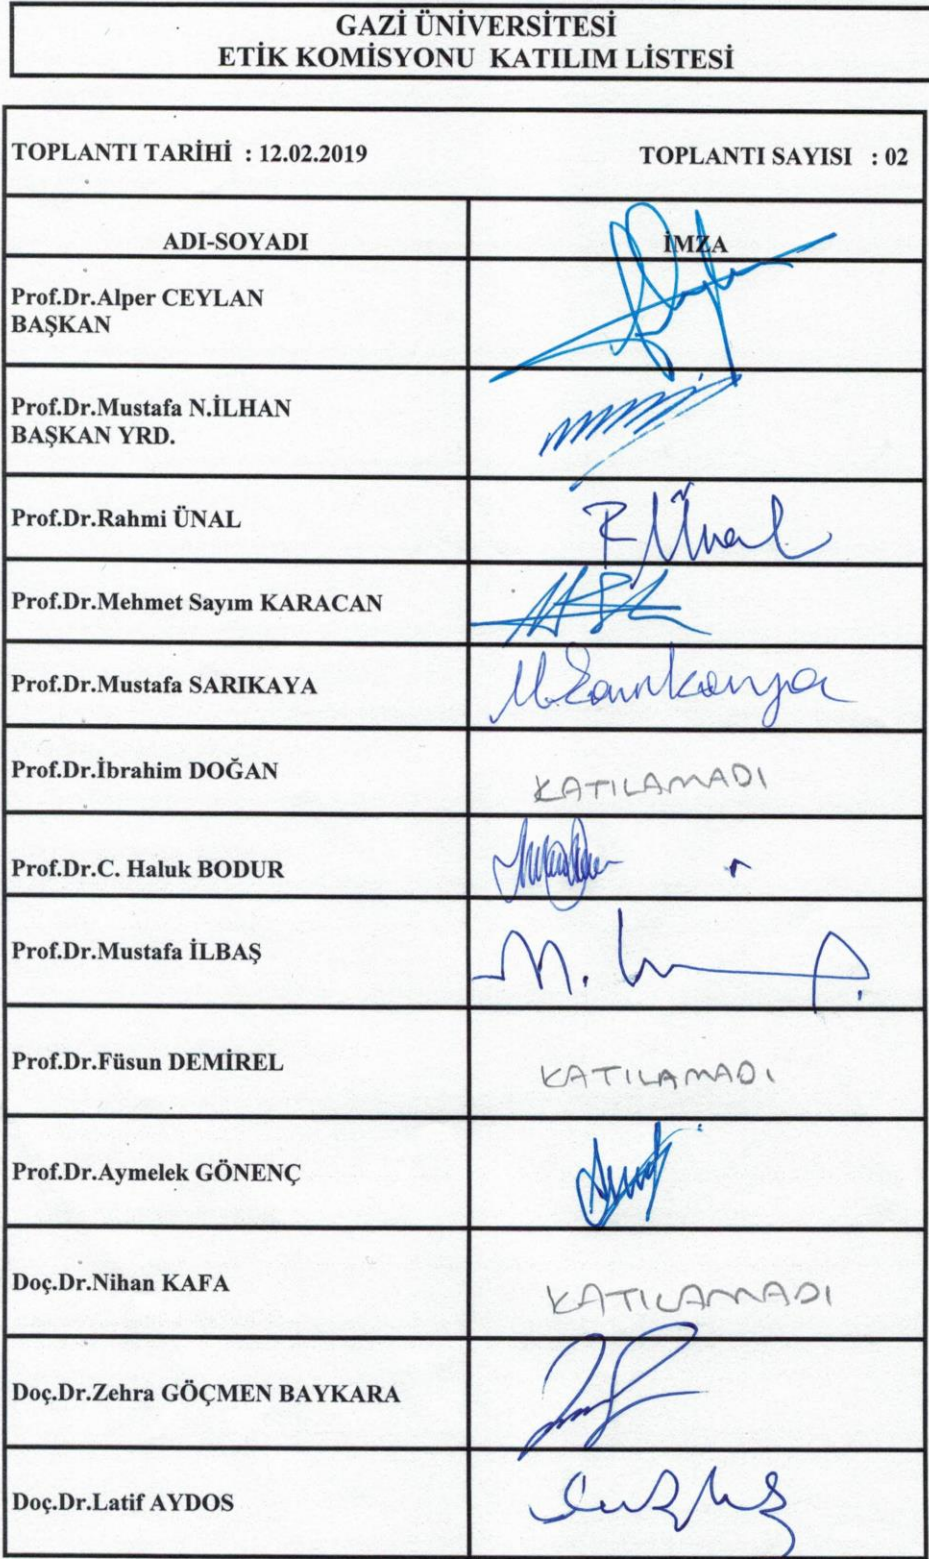 GAZİ ÜNİVERSİTESİ
ETİK KOMİSYONU KATILIM LİSTESİ
TOPLANTI TARİHİ : 12.02.2019 TOPLANTI SAYISI : 02
ADI-SOYADI İMZA
Prof.Dr.Alper CEYLAN
BAŞKAN
Prof.Dr.Mustafa N.İLHAN
BAŞKAN YRD.
Prof.Dr.Rahmi ÜNAL R Ünal
Prof.Dr.Mehmet Sayım KARACAN
Prof.Dr.Mustafa SARIKAYA M.Sarıkaya
Prof.Dr.İbrahim DOĞAN KATILAMADI
Prof.Dr.C. Haluk BODUR
Prof.Dr.Mustafa İLBAŞ
Prof.Dr.Füsun DEMİREL KATILAMADI
Prof.Dr.Aymelek GÖNENÇ
Doç.Dr.Nihan KAFA KATILAMADI
Doç.Dr.Zehra GÖÇMEN BAYKARA
Doç.Dr.Latif AYDOS